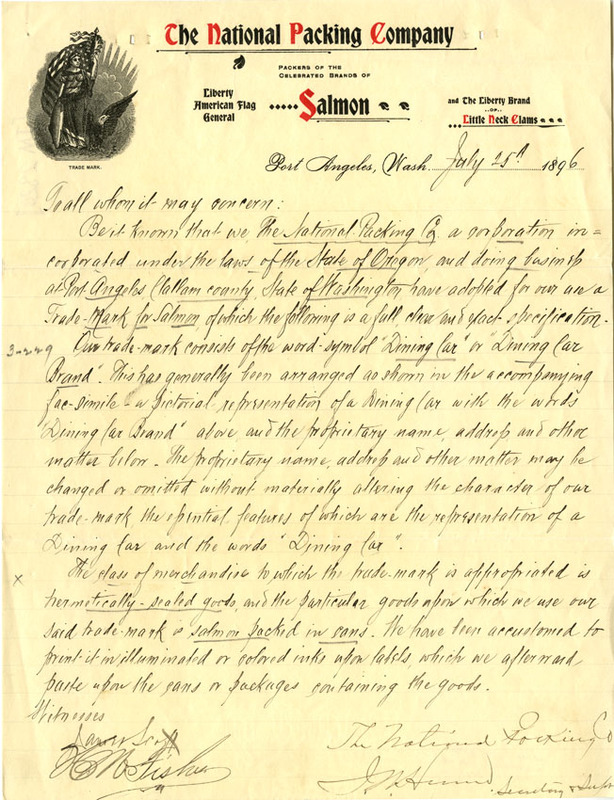 The National Packing Company
PACKERS OF THE
CELEBRATED BRANDS OF
Liberty
American Flag
General
Salmon
and The Liberty Brand
OF
Little Neck Clams
TRADE MARK.
Port Angeles, Wash. July 25th 1896
To all whom it may concern:
Be it known that we, The National Packing Co. a corporation in=
corporated under the laws of the State of Oregon, and doing business
at Port Angeles Clallam county, State of Washington have adopted for our use a
Trade-Mark for Salmon, of which the following is a full clear and exact specification.
3-229
Our trade-mark consists of the word-symbol "Dining Car" or "Dining Car
Brand". This has generally been arranged as shown in the accompanying
fac-simile - a pictorial representation of a Dining Car with the words
"Dining Car Brand" above and the proprietary name, address and other
matter below. The proprietary name, address and other matter may be
changed or omitted without materially altering the character of our
trade-mark the essential features of which are the representation of a
Dining Car and the words "Dining Car".
x
The class of merchandise to which the trade-mark is appropriated is
hermetically-sealed goods, and the particular goods upon which we use our
said trade-mark is salmon packed in cans. We have been accustomed to
print it in illuminated or colored inks upon labels, which we afterward
paste upon the cans or packages containing the goods.
Witnesses
The National Packing Co
Fisher
Secretary &